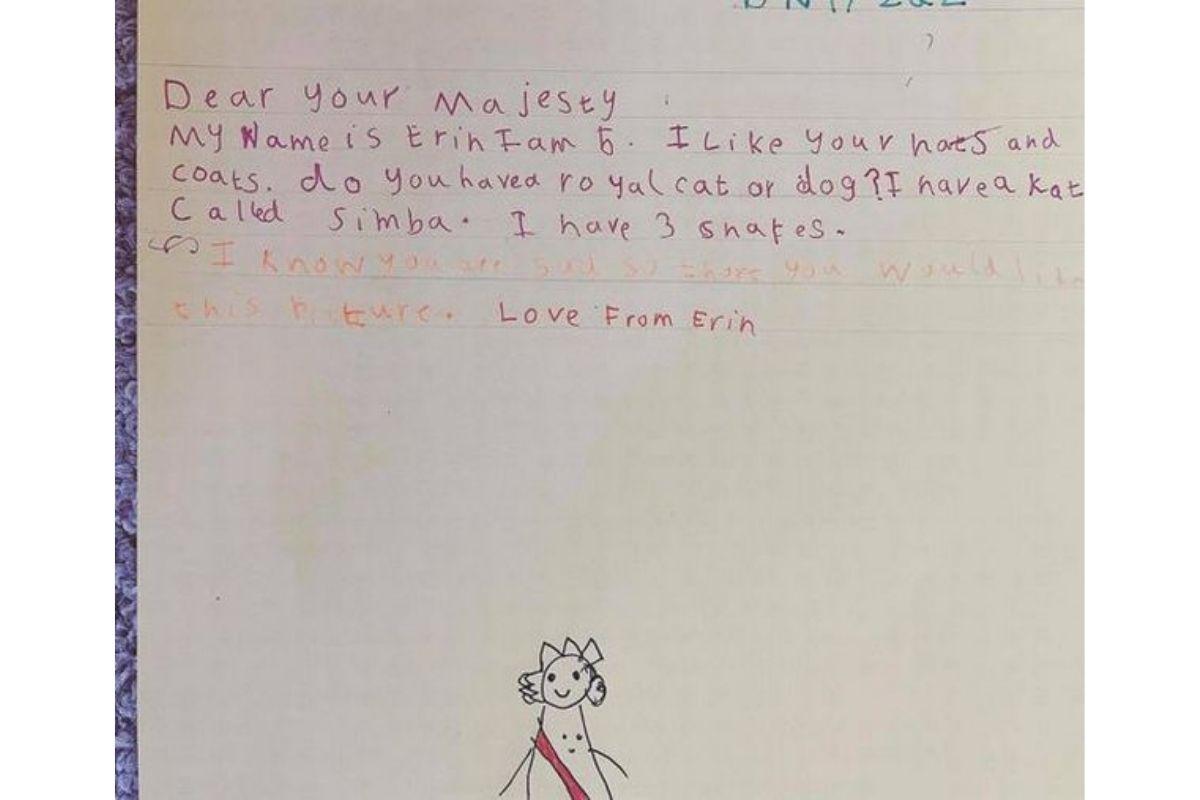 Dear your Majesty
My Name is Erin I am 5. I Like your hats and
coats. do you have a royal cat or dog? I have a kat
Called Simba. I have 3 snakes.
I know you are sad so thort you would like
this picture. Love From Erin